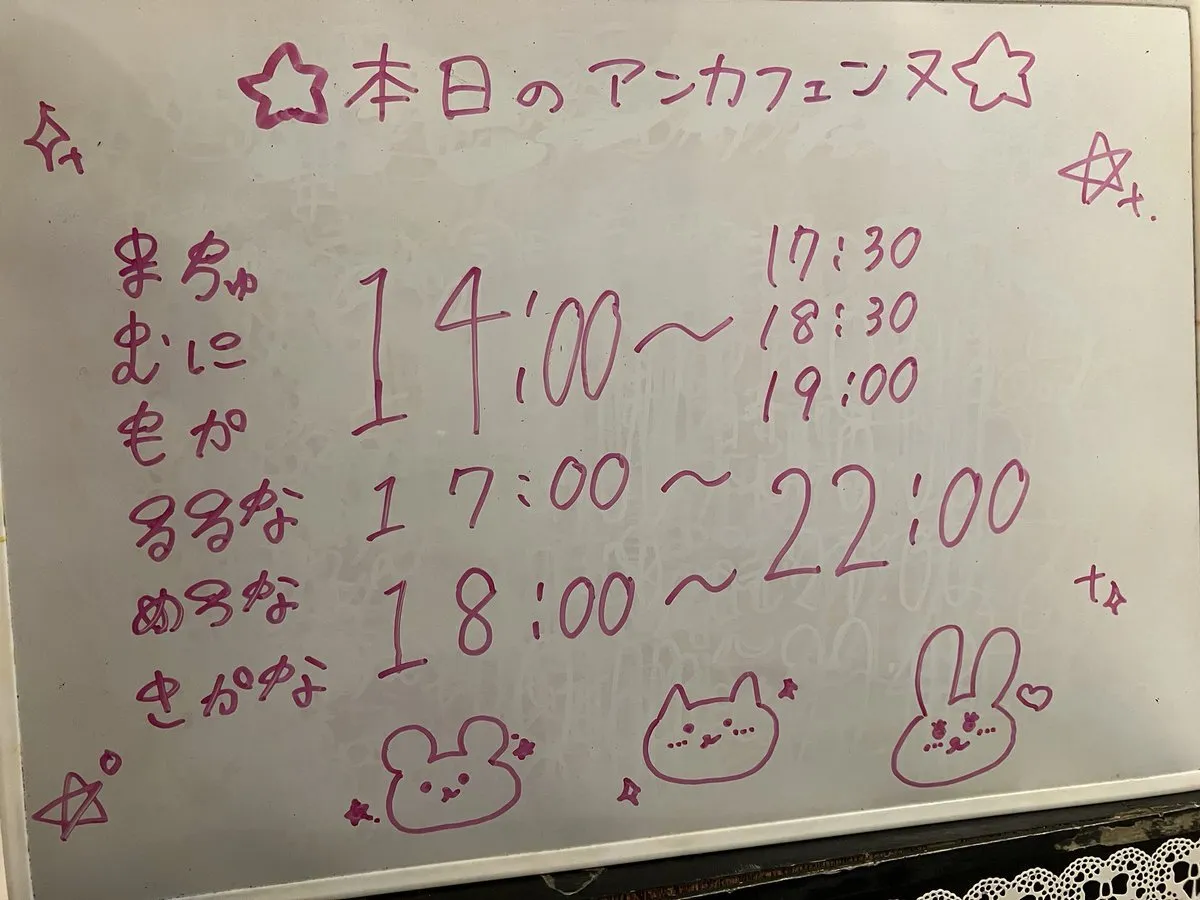 ☆本日のアンカフェンヌ☆
まちゅ 14:00〜17:30
むに 18:30
もが 19:00
るるな 17:00〜22:00
めるな 18:00〜
さがな